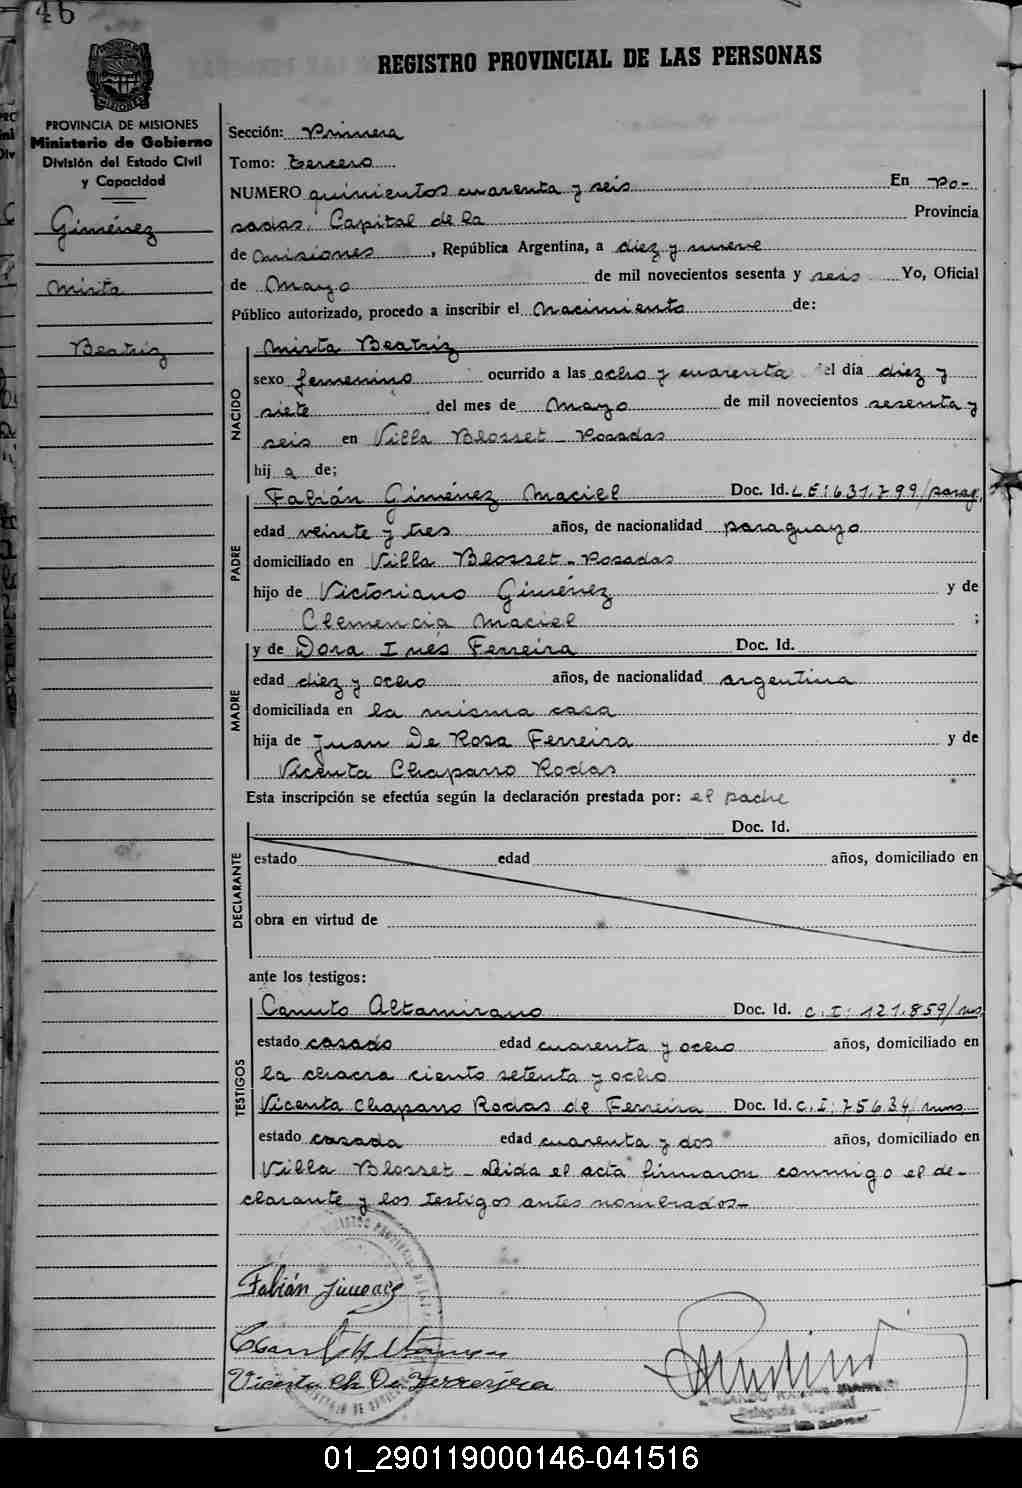 46
REGISTRO PROVINCIAL DE LAS PERSONAS
PROVINCIA DE MISIONES
Ministerio de Gobierno
División del Estado Civil
y Capacidad
Giménez
Mirta
Beatriz
Sección: Primera
Tomo: tercero
NUMERO quinientos cuarenta y seis En Po-
sadas, Capital de la Provincia
de Misiones, República Argentina, a diez y nueve
de Mayo de mil novecientos sesenta y seis Yo, Oficial
Público autorizado, procedo a inscribir el Nacimiento de:
NACIDO
Mirta Beatriz
sexo femenino ocurrido a las ocho y cuarenta el día diez y
siete del mes de Mayo de mil novecientos sesenta y
seis en Villa Blosset - Posadas
hij a de;
PADRE
Fabián Giménez Maciel Doc. Id. LE: 631.799/parag.
edad veinte y tres años, de nacionalidad paraguayo
domiciliado en Villa Blosset - Posadas
hijo de Victoriano Giménez y de
Clemencia Maciel ;
MADRE
y de Dora Inés Ferreira Doc. Id.
edad diez y ocho años, de nacionalidad argentina
domiciliada en la misma casa
hija de Juan De Rosa Ferreira y de
Vicenta Chaparro Rodas
Esta inscripción se efectúa según la declaración prestada por: el padre
DECLARANTE
Doc. Id.
estado edad años, domiciliado en
obra en virtud de
ante los testigos:
TESTIGOS
Canuto Altamirano Doc. Id. C.I: 121.859/ms
estado casado edad cuarenta y ocho años, domiciliado en
la chacra ciento setenta y ocho
Vicenta Chaparro Rodas de Ferreira Doc. Id. C.I: 75634/mns
estado casada edad cuarenta y dos años, domiciliado en
Villa Blosset - Leida el acta firmaron conmigo el de-
clarante y los testigos antes nombrados-
Fabián Jimenez
Vicenta Ch De Ferreira
01_290119000146-041516